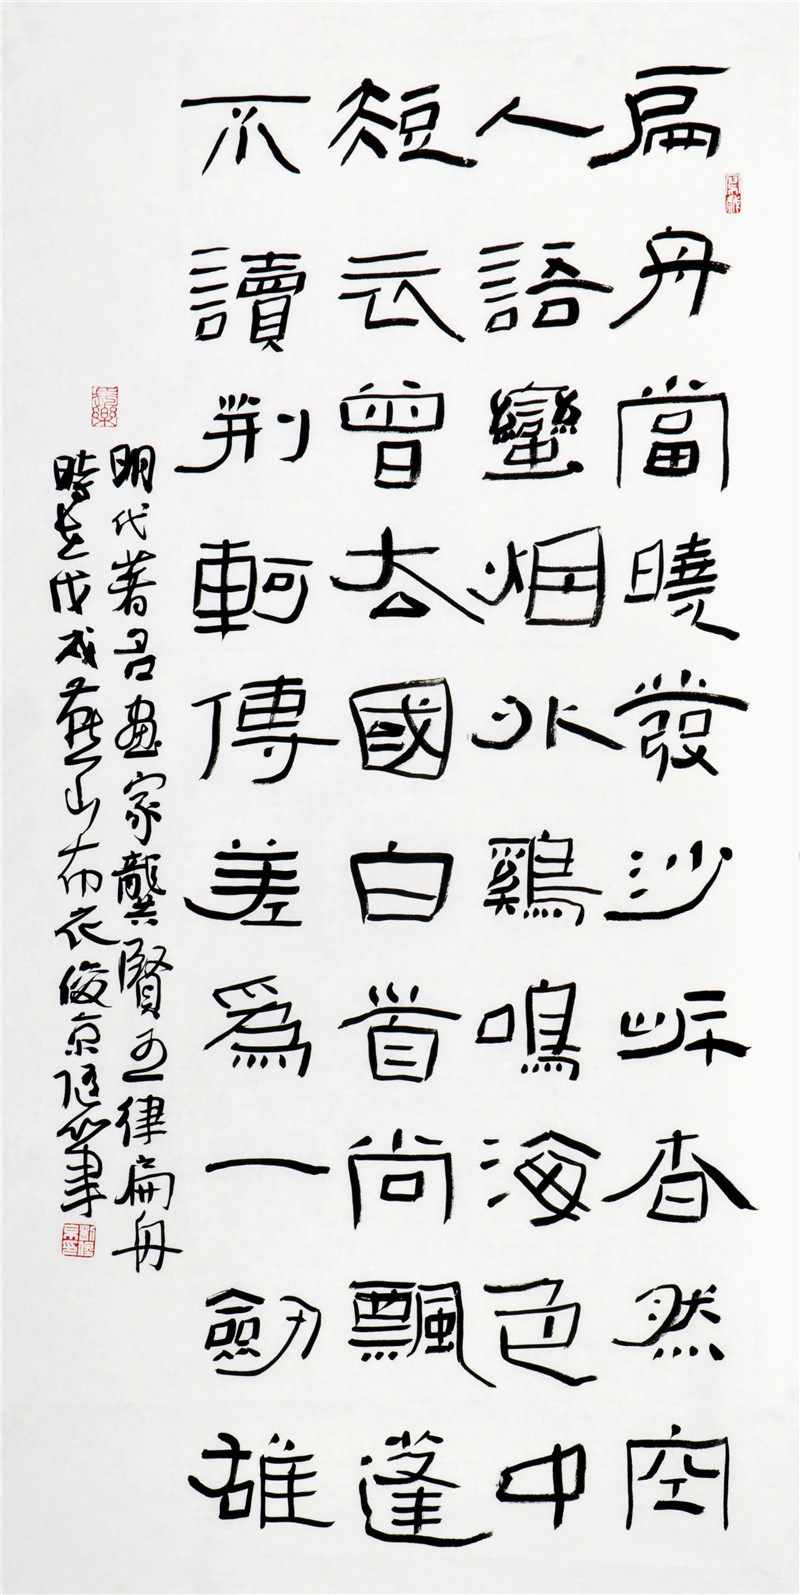 扁舟當曉發沙岸杳然空
人語蠻烟水鷄鳴海色中
短衣曾去國白首尚飄蓬
不讀荆軻傳差爲一劍雄
明代著名畫家龔賢五律扁舟
時在戊戌燕山布衣俊京随筆